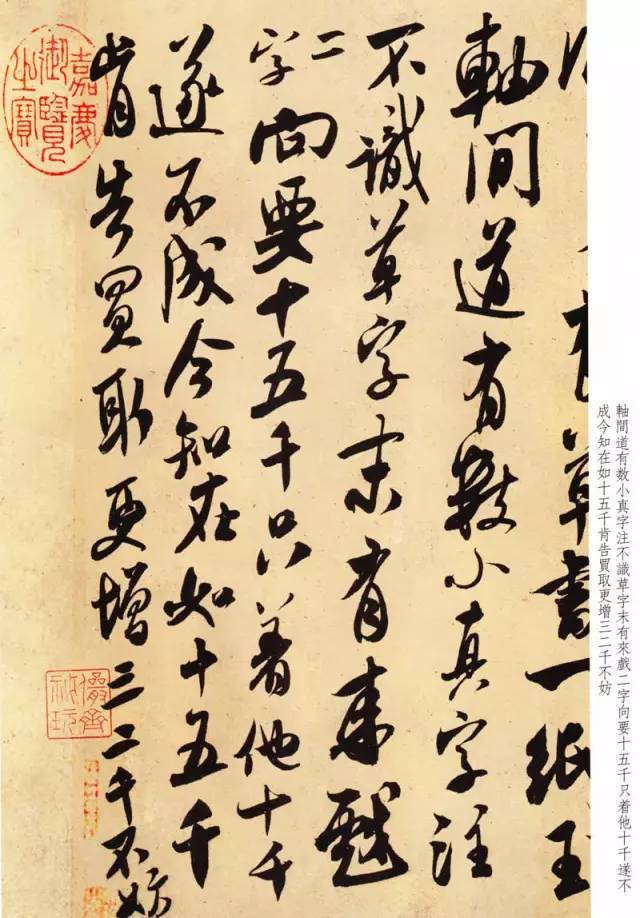 草書一紙玉
軸間道有數小真字注
不識草字末有来戲
二
字向要十五千只着他十千
遂不成今知在如十五千
肯告買取更增三二千不妨
嘉慶
御覽
之寶
儼齋
秘玩
軸間道有数小真字注不識草字末有來戲二字向要十五千只着他十千遂不
成今知在如十五千肯告買取更增三二千不妨